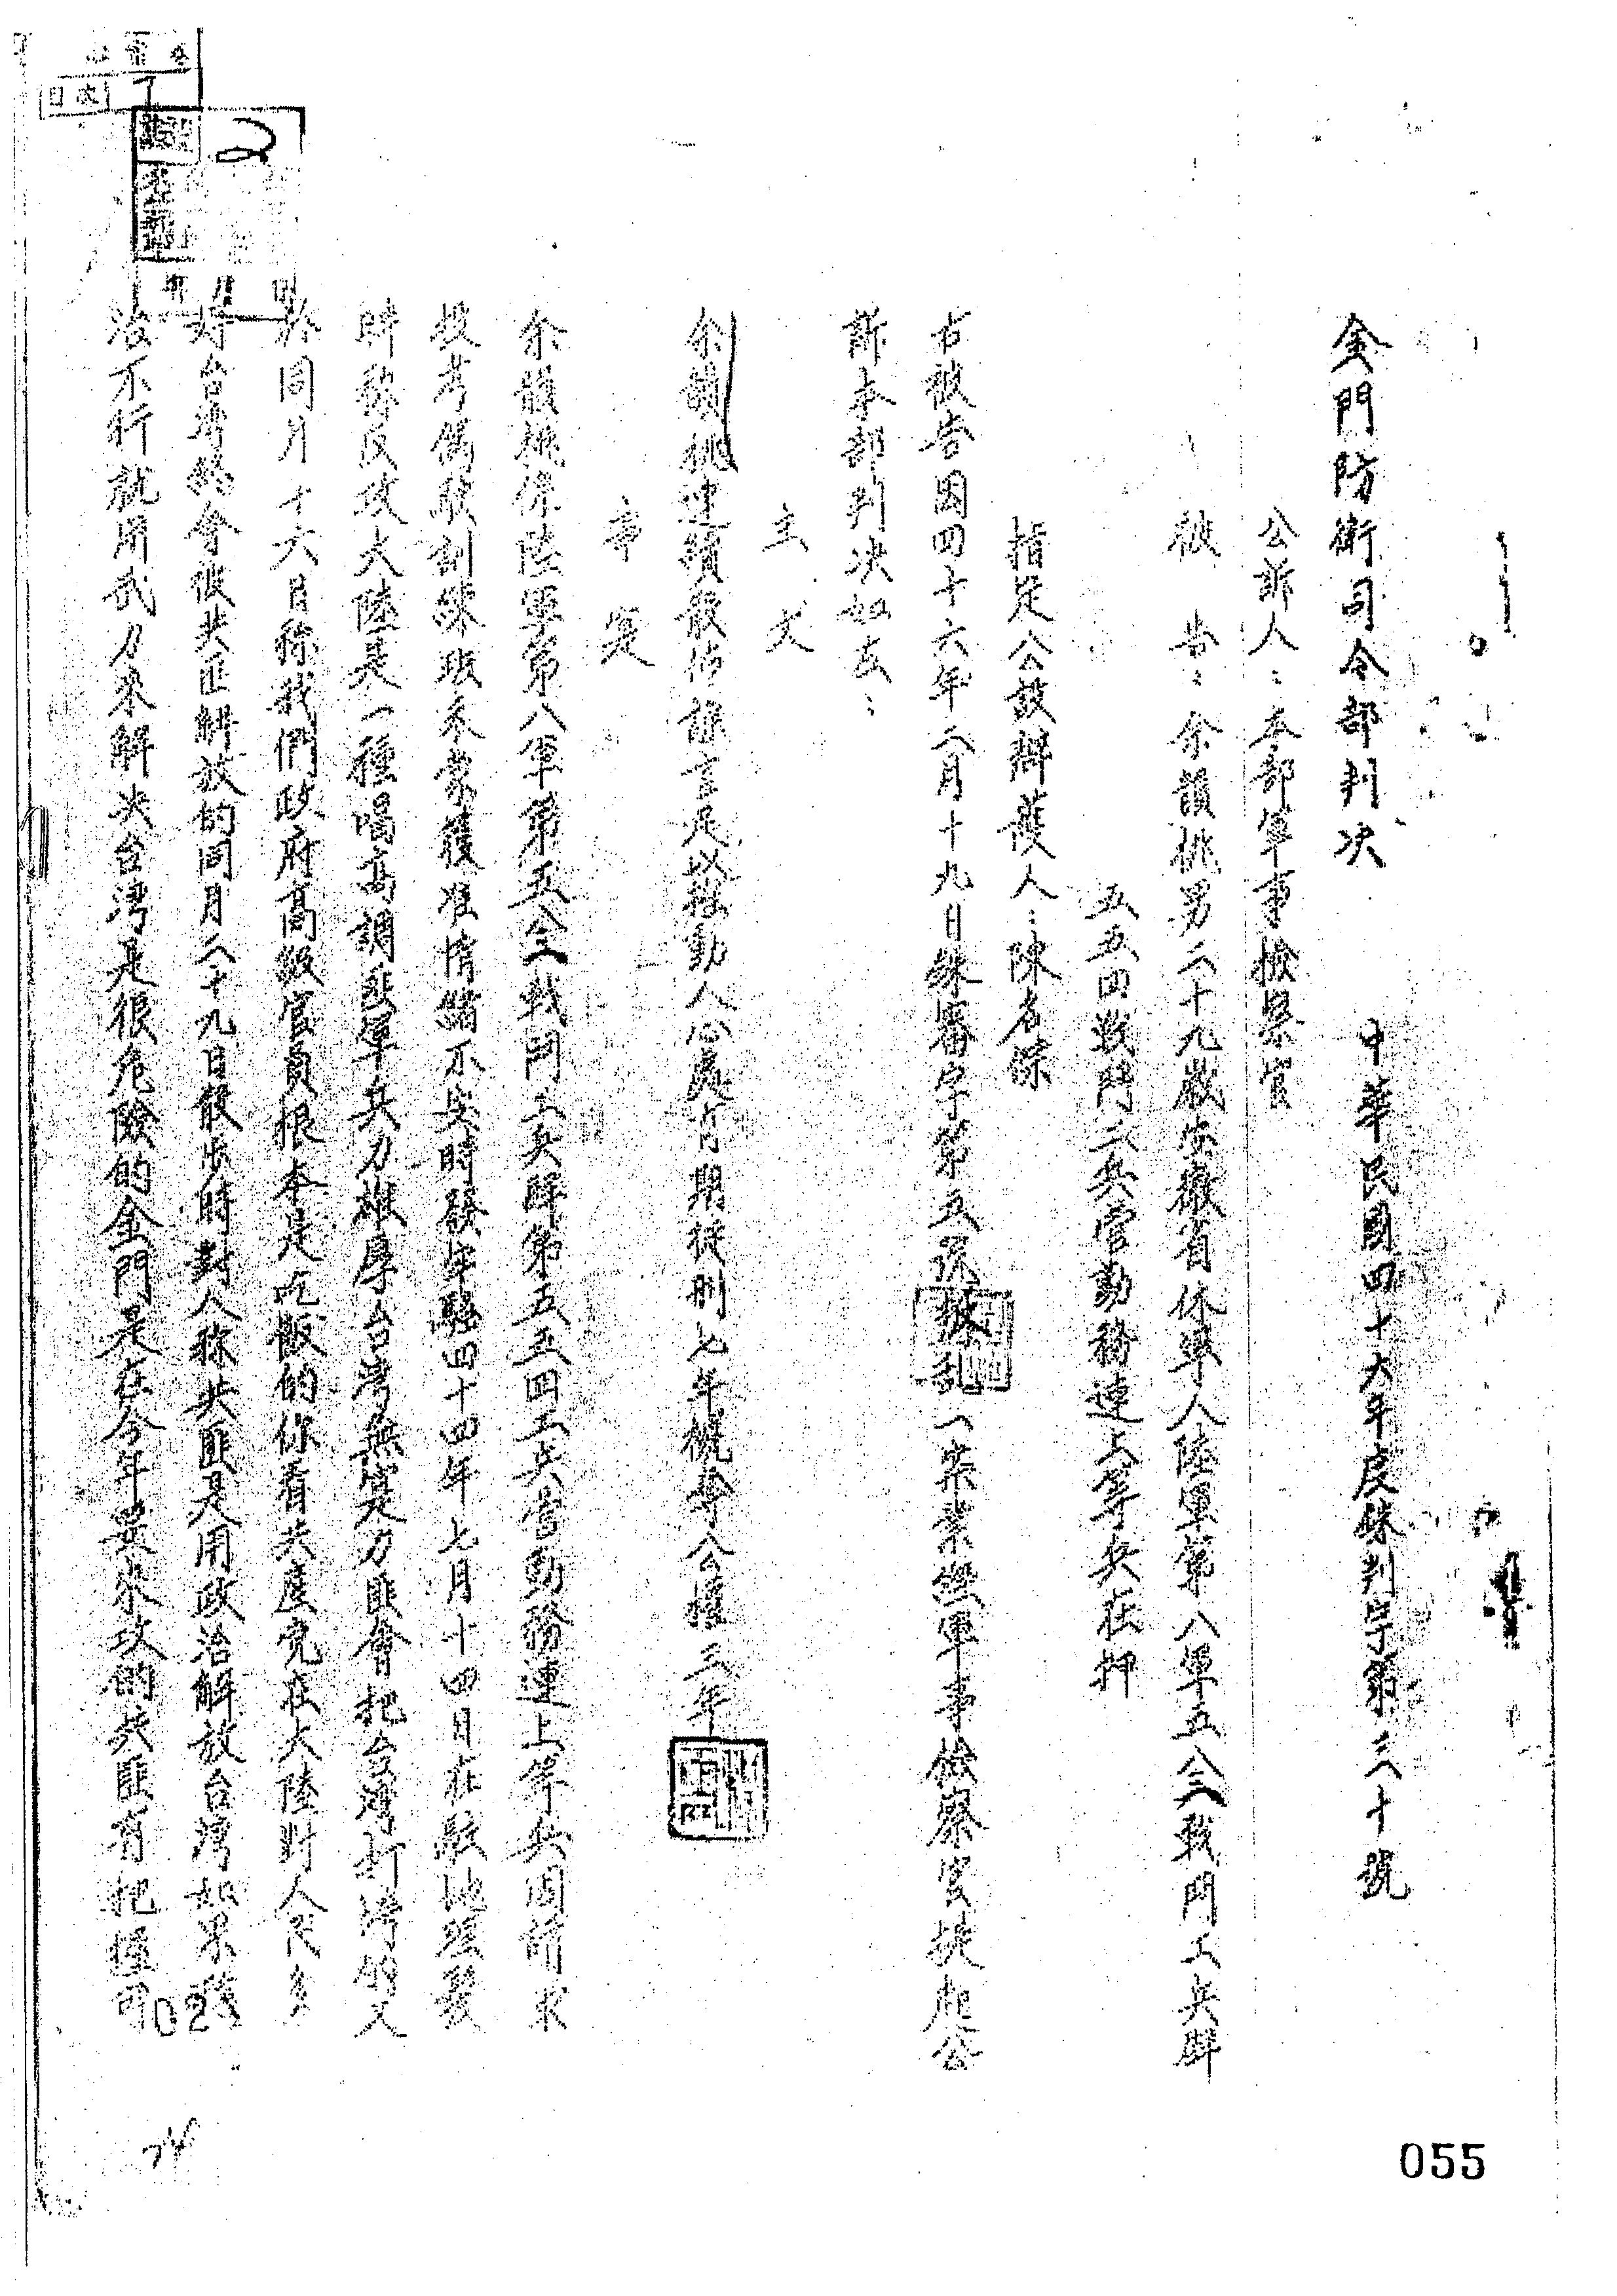 金門防衛司令部判决
中華民國四十六年度銖判字第三十號
公訴人：本部軍事檢察官
被告：余韻桃男二十九歲安徽省休寧人陸軍第八軍五八三戰鬥工兵群
五五四戰鬥工兵營勤務連上等兵在押
指定公設辯護人：陳名傑
右被告因四十六年二月十九日銖審字第五號叛乱一案業經軍事檢察官提起公
訴本部判决如左：
主文
余韻桃連續散佈謠言足以搖動人心處有期徒刑七年褫奪公權三年
事實
余韻桃係陸軍第八軍第五八三戰鬥工兵群第五五四工兵營勤務連上等兵因請求
投考 訓練班未蒙獲准情緒不安時發牢騷四十四年七月十四日在駐地
時稱反攻大陸是一種喝高調匪軍兵力雄厚台灣無實力匪會把台灣打垮的又
於同月十六日称我們政府高級官員根本是吃飯的你看共產党在大陸對人民多
好台灣總會被共匪解放的同月二十九日散步時對人称共匪是用政治解放台灣如果政
治不行就用武力來解决台灣是很危險的金門是在今年要來攻的共匪有把握
目次
2
02
055